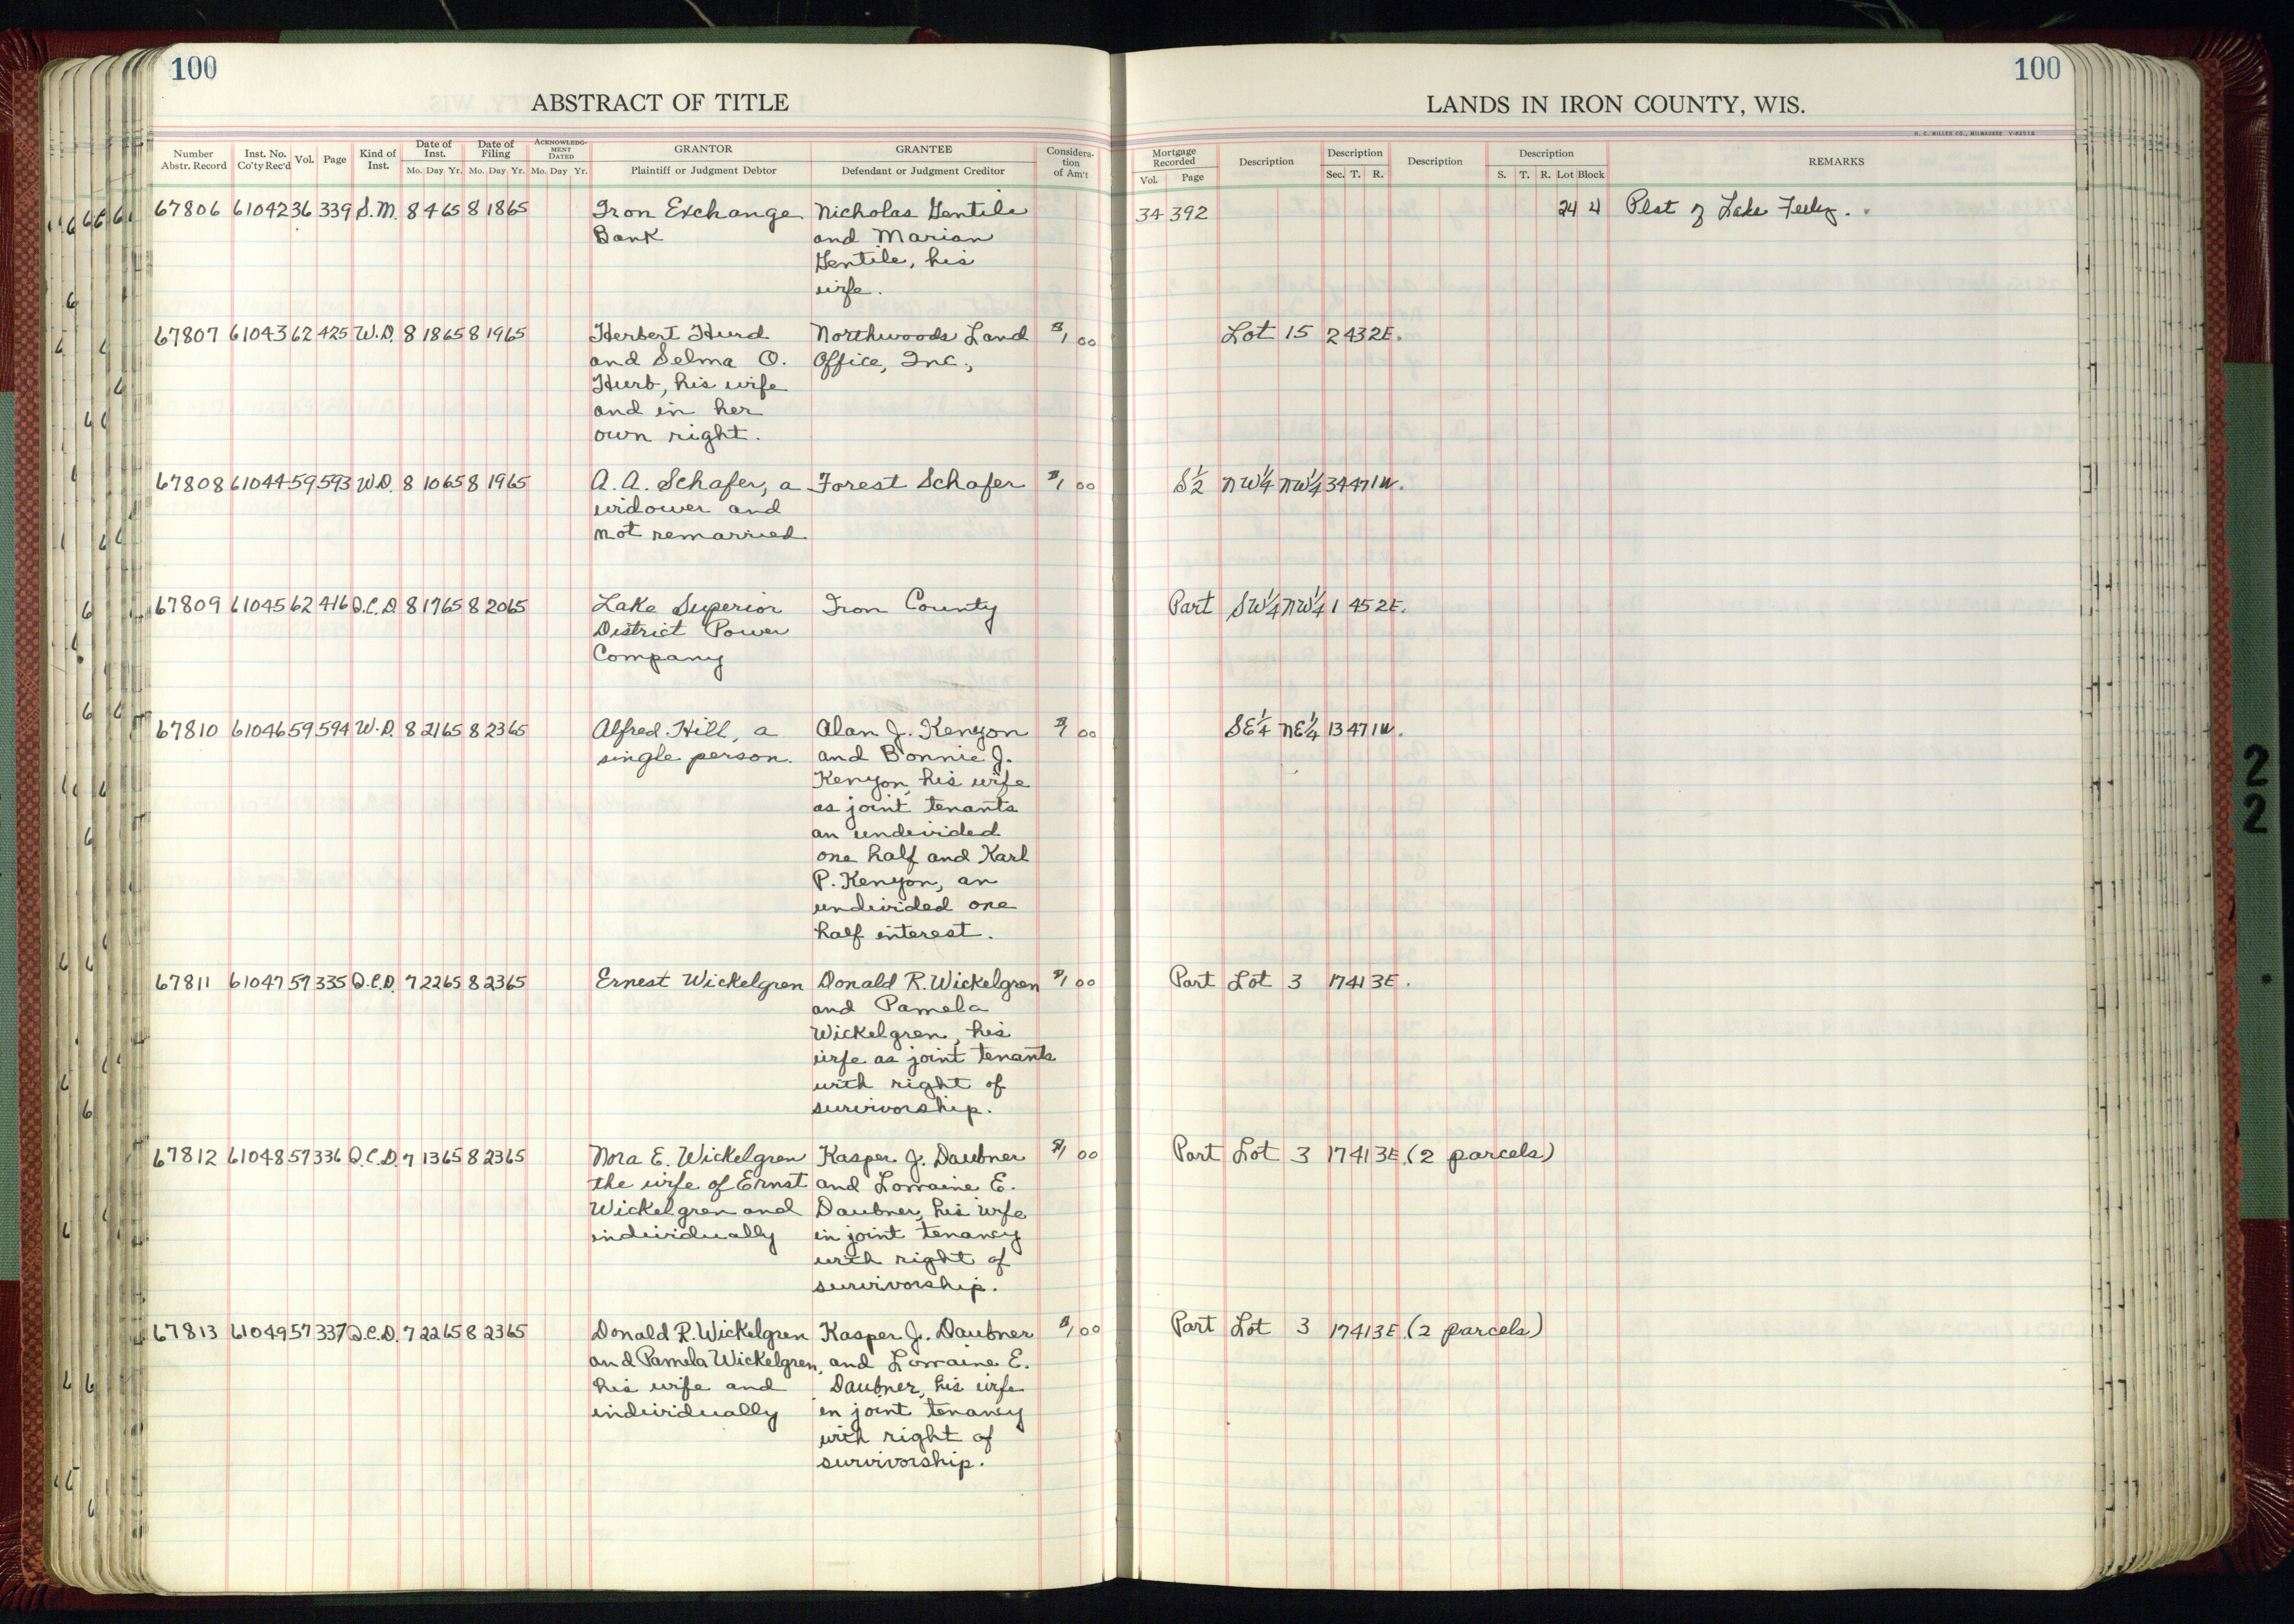 100
100
ABSTRACT OF TITLE
LANDS IN IRON COUNTY, WIS.
H. C. MILLER CO., MILWAUKEE
Number Abstr. Record Inst. No. Co'ty Rec'd Vol. Page Kind of Inst. Date of Inst. Mo. Day Yr. Date of Filing Mo. Day Yr. ACKNOWLEDGMENT DATED Mo. Day Yr. GRANTOR Plaintiff or Judgment Debtor GRANTEE Defendant or Judgment Creditor Consideration of Am't Mortgage Recorded Vol. Page Description Description Sec. T. R. Description Description S. T. R. Lot Block REMARKS
67806 61042 36 339 S.M. 8 4 65 8 18 65 Iron Exchange Nicholas Gentile 34 392 24 4 Plat of Lake Feely.
Bank and Marian
Gentile, his
wife.
67807 61043 62 425 W.D. 8 18 65 8 19 65 Herbert Hurd Northwoods Land $1 00 Lot 15 2 43 2E.
and Selma O. Office, Inc.,
Hurb, his wife
and in her
own right.
67808 61044 59 593 W.D. 8 10 65 8 19 65 A. A. Schafer, a Forest Schafer $1 00 S½ NW¼ NW¼ 34 47 1W.
widower and
not remarried
67809 61045 62 416 Q.C.D. 8 17 65 8 20 65 Lake Superior Iron County Part SW¼ NW¼ 1 45 2E.
District Power
Company
67810 61046 59 594 W.D. 8 21 65 8 23 65 Alfred Hill, a Alan J. Kenyon $1 00 SE¼ NE¼ 13 47 1W.
single person. and Bonnie J.
Kenyon, his wife
as joint tenants
an undivided
one half and Karl
P. Kenyon, an
undivided one
half interest.
67811 61047 57 335 Q.C.D. 7 22 65 8 23 65 Ernest Wickelgren Donald R. Wickelgren $1 00 Part Lot 3 17 41 3E.
and Pamela
Wickelgren, his
wife as joint tenants
with right of
survivorship.
67812 61048 57 336 Q.C.D. 7 13 65 8 23 65 Nora E. Wickelgren Kasper J. Daubner $1 00 Part Lot 3 17 41 3E. (2 parcels)
the wife of Ernst and Lorraine E.
Wickelgren and Daubner, his wife
individually in joint tenancy
with right of
survivorship.
67813 61049 57 337 Q.C.D. 7 22 65 8 23 65 Donald R. Wickelgren Kasper J. Daubner $1 00 Part Lot 3 17 41 3E. (2 parcels)
and Pamela Wickelgren, and Lorraine E.
his wife and Daubner, his wife
individually in joint tenancy
with right of
survivorship.
2
2